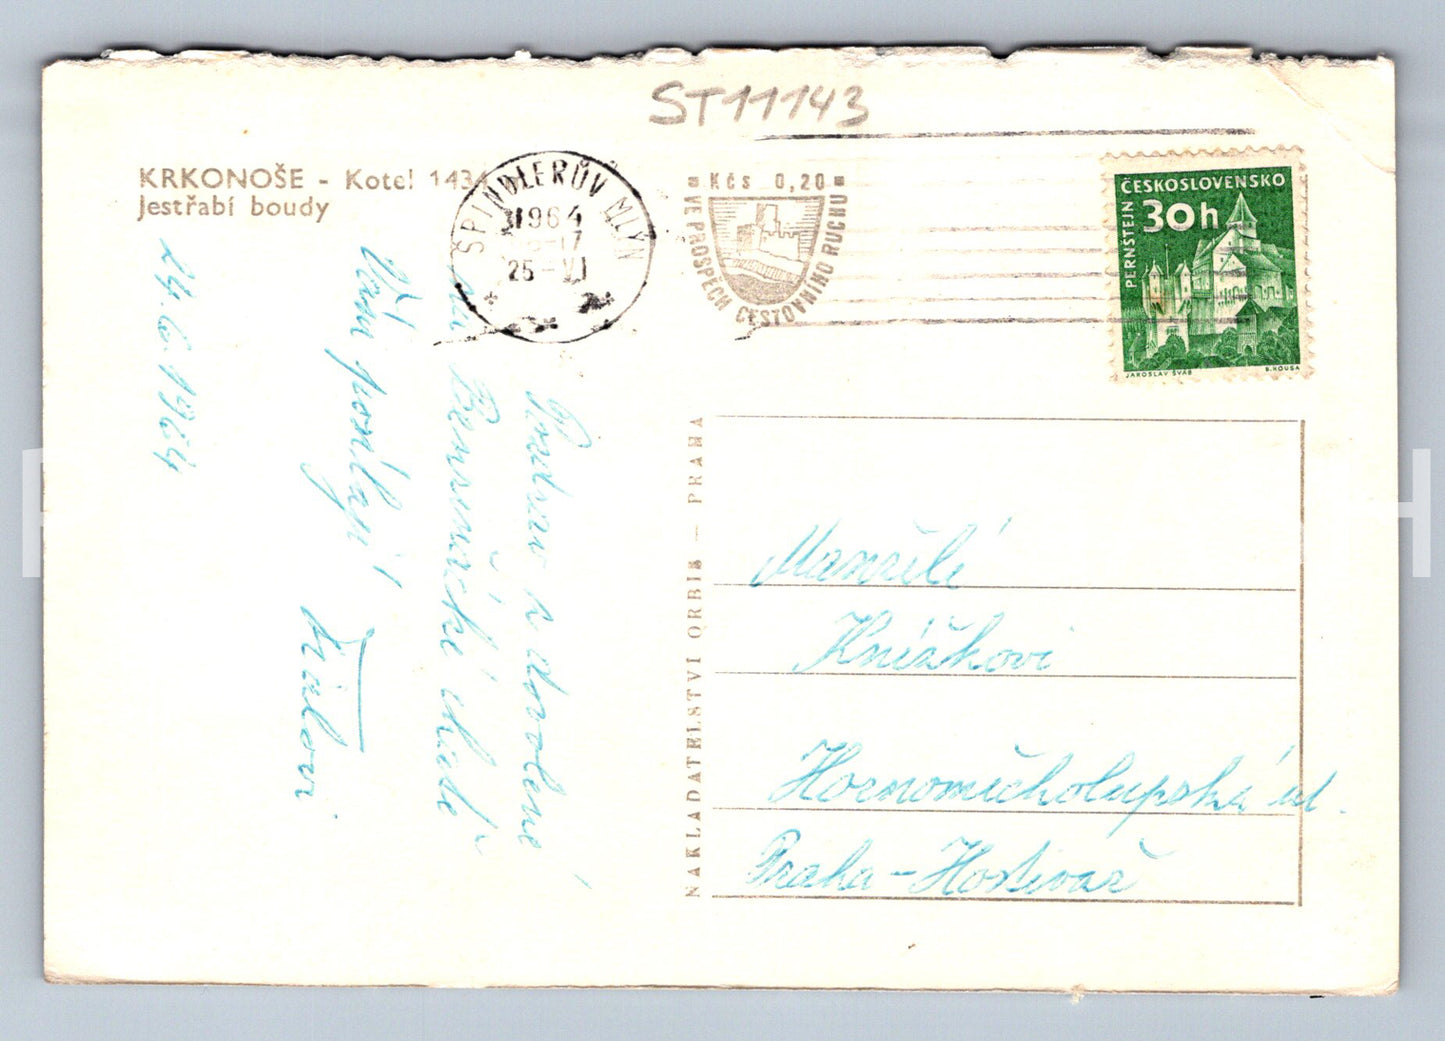 ST11143
KRKONOŠE - Kotel 1434
Jestřabí boudy
ŠPINDLERŮV MLÝN
1964
-17
25 -VI
Kčs 0,20
VE PROSPĚCH CESTOVNÍHO RUCHU
ČESKOSLOVENSKO
30h
PERNŠTEJN
JAROSLAV ŠVÁB
B. HOUSA
24. 6. 1964
Pozdrav z dovolené
na Benzinské chatě
Vám posílají
Královi
NAKLADATELSTVÍ ORBIS — PRAHA
Manželé
Knížkovi
Hornoměcholupská ul.
Praha - Hostivař